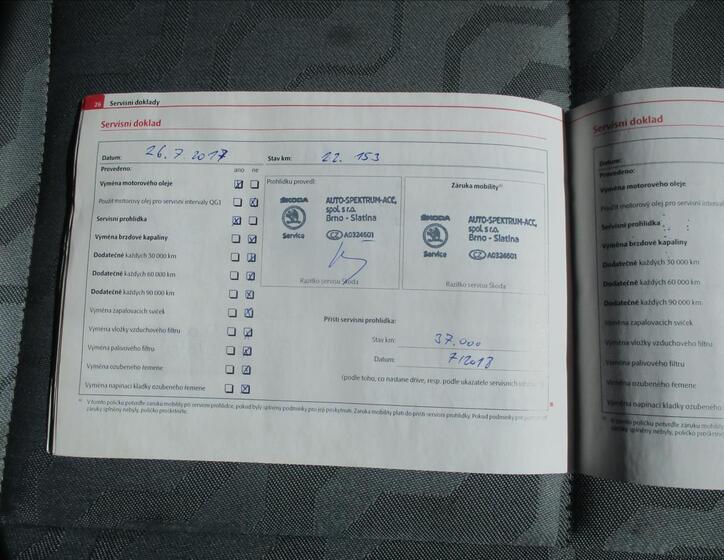 26 Servisní doklady
Servisní doklad
Datum: 26.7.2017 Stav km: 22.153
Provedeno: ano ne
Výměna motorového oleje
Použit motorový olej pro servisní intervaly QG1
Servisní prohlídka
Výměna brzdové kapaliny
Dodatečně každých 30 000 km
Dodatečně každých 60 000 km
Dodatečně každých 90 000 km
Výměna zapalovacích svíček
Výměna vložky vzduchového filtru
Výměna palivového filtru
Výměna ozubeného řemene
Výměna napínací kladky ozubeného řemene
Prohlídku provedl:
ŠKODA
Service
AUTO-SPEKTRUM-ACC,
spol. s r.o.
Brno - Slatina
CZ A0324501
Razítko servisu Škoda
Záruka mobility
ŠKODA
Service
AUTO-SPEKTRUM-ACC,
spol. s r.o.
Brno - Slatina
CZ A0324501
Razítko servisu Škoda
Příští servisní prohlídka:
Stav km: 37.000
Datum: 7/2018
(podle toho, co nastane dříve, resp. podle ukazatele servisních
V tomto políčku potvrďte záruku mobility po servisní prohlídce, pokud byly splněny podmínky pro její poskytnutí. Záruka mobility platí do příští servisní prohlídky. Pokud podmínky pro
záruky splněny nebyly, políčko proškrtněte.
Servisní doklad
Datum:
Provedeno:
Výměna motorového oleje
Použit motorový olej pro servisní interval
Servisní prohlídka
Výměna brzdové kapaliny
Dodatečně každých 30 000 km
Dodatečně každých 60 000 km
Dodatečně každých 90 000 km
Výměna zapalovacích svíček
Výměna vložky vzduchového filtru
Výměna palivového filtru
Výměna ozubeného řemene
Výměna napínací kladky ozubeného
V tomto políčku potvrďte záruku mobility
záruky splněny nebyly, políčko proškrtněte